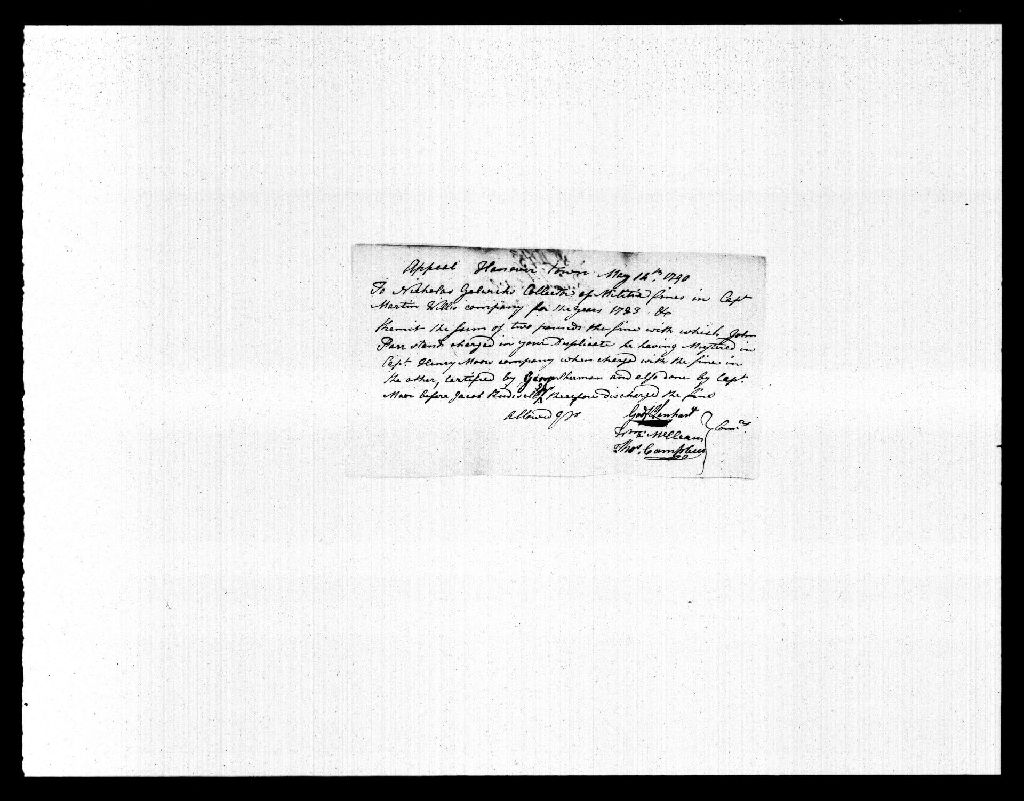 Appeal Hanover Town May 14th 1790
To Nicholas Gelwicks Collector of Militia fines in Capt
Martin Will's company for the years 1783 &c
Remit the sum of two pounds the fine with which John
Parr stands charged in your Duplicate he having Mustered in
Capt Henry Moor company when charged with the fine in
the other, Certified by George Sherman and also done by Capt.
Moor before Jacob Rudisill Esqr therefore discharge the fine
Allowed
Godf Lenhart
Wm McClean
Thos. Campbell
Comrs